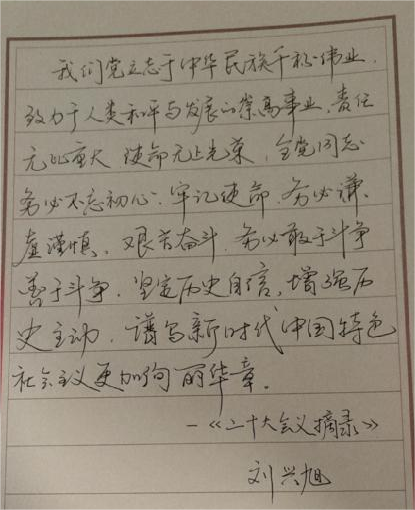 我们党立志于中华民族千秋伟业，
致力于人类和平与发展的崇高事业，责任
无比重大，使命无上光荣，全党同志
务必不忘初心、牢记使命，务必谦
虚谨慎、艰苦奋斗，务必敢于斗争
善于斗争，坚定历史自信，增强历
史主动，谱写新时代中国特色
社会主义更加绚丽华章。
—《二十大会议摘录》
刘兴旭